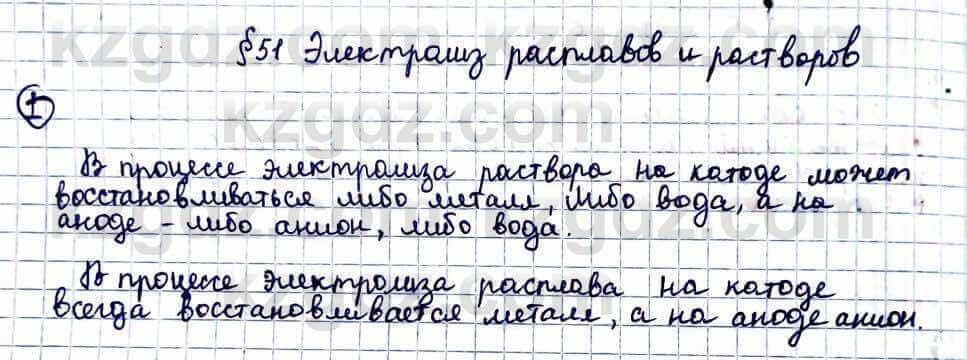 §51 Электролиз расплавов и растворов
I
В процессе электролиза раствора на катоде может
восстановливаться либо металл, либо вода, а на
аноде - либо анион, либо вода.
В процессе электролиза расплава на катоде
всегда восстановливается металл, а на аноде анион.
kzgdz.com